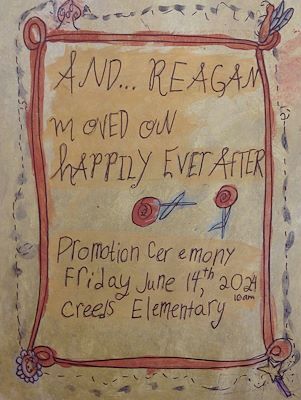 AND... REAGAN
MOVED ON
HAPPILY EVER AFTER
Promotion Ceremony
Friday June 14th, 2024
10am
Creeds Elementary